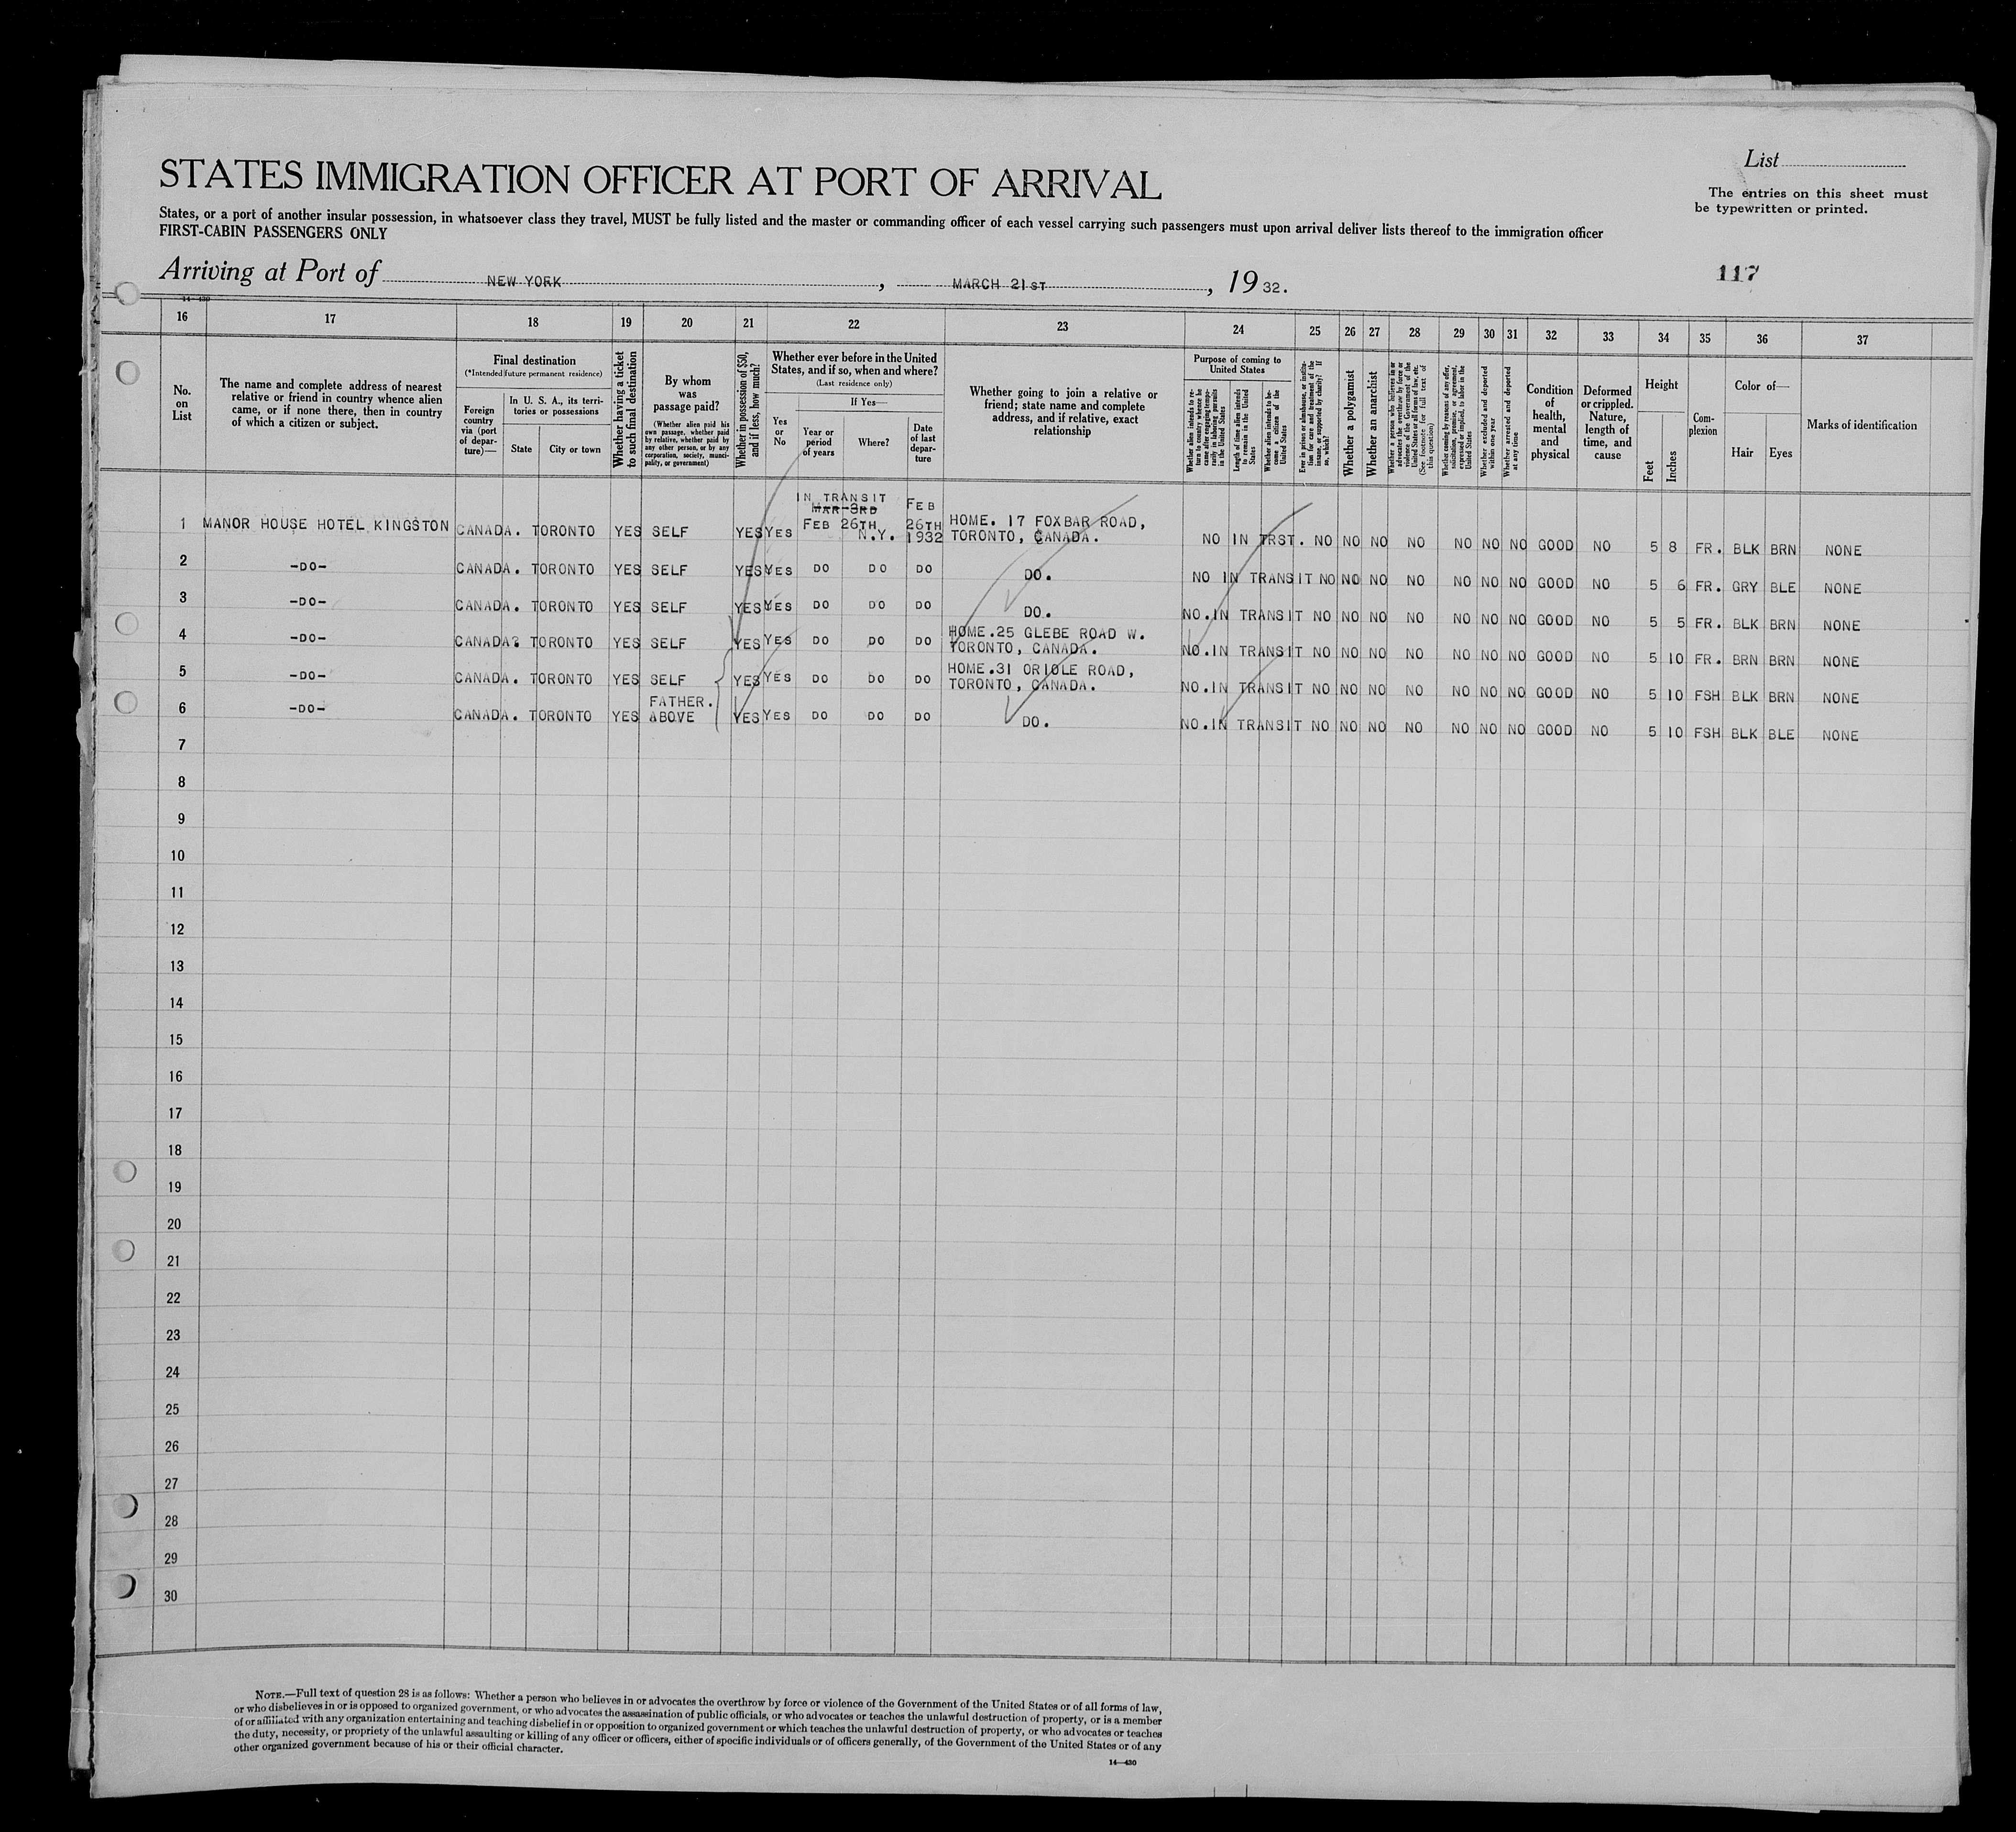 List
STATES IMMIGRATION OFFICER AT PORT OF ARRIVAL
The entries on this sheet must
be typewritten or printed.
States, or a port of another insular possession, in whatsoever class they travel, MUST be fully listed and the master or commanding officer of each vessel carrying such passengers must upon arrival deliver lists thereof to the immigration officer
FIRST-CABIN PASSENGERS ONLY
Arriving at Port of NEW YORK, MARCH 21ST, 19 32.
117
14—430
16 17 18 19 20 21 22 23 24 25 26 27 28 29 30 31 32 33 34 35 36 37
No.
on
List
The name and complete address of nearest
relative or friend in country whence alien
came, or if none there, then in country
of which a citizen or subject.
Final destination
(*Intended future permanent residence)
Foreign
country
via (port
of depar-
ture)—
In U. S. A., its terri-
tories or possessions
State
City or town
Whether having a ticket
to such final destination
By whom
was
passage paid?
(Whether alien paid his
own passage, whether paid
by relative, whether paid by
any other person, or by any
corporation, society, munici-
pality, or government)
Whether in possession of $50,
and if less, how much?
Whether ever before in the United
States, and if so, when and where?
(Last residence only)
Yes
or
No
If Yes—
Year or
period
of years
Where?
Date
of last
depar-
ture
Whether going to join a relative or
friend; state name and complete
address, and if relative, exact
relationship
Purpose of coming to
United States
Whether alien intends to re-
turn to country whence he
came after engaging tempo-
rarily in laboring pursuits
in the United States
Length of time alien intends
to remain in the United
States
Whether alien intends to be-
come a citizen of the
United States
Ever in prison or almshouse, or institu-
tion for care and treatment of the
insane, or supported by charity? If
so, which?
Whether a polygamist
Whether an anarchist
Whether a person who believes in or
advocates the overthrow by force or
violence of the Government of the
United States or all forms of law, etc.
(See footnote for full text of
this question)
Whether coming by reasons of any offer,
solicitation, promise, or agreement,
expressed or implied, to labor in the
United States
Whether excluded and deported
within one year
Whether arrested and deported
at any time
Condition
of
health,
mental
and
physical
Deformed
or crippled.
Nature,
length of
time, and
cause
Height
Feet
Inches
Com-
plexion
Color of—
Hair
Eyes
Marks of identification
IN TRANSIT
MAR-3RD
1 MANOR HOUSE HOTEL KINGSTON CANADA. TORONTO YES SELF YES YES FEB 26TH N.Y. FEB 26TH 1932 HOME. 17 FOXBAR ROAD,
TORONTO, CANADA. NO IN TRST. NO NO NO NO NO NO NO GOOD NO 5 8 FR. BLK BRN NONE
2 -DO- CANADA. TORONTO YES SELF YES YES DO DO DO DO. NO IN TRANSIT NO NO NO NO NO NO NO GOOD NO 5 6 FR. GRY BLE NONE
3 -DO- CANADA. TORONTO YES SELF YES YES DO DO DO DO. NO.IN TRANSIT NO NO NO NO NO NO NO GOOD NO 5 5 FR. BLK BRN NONE
4 -DO- CANADA? TORONTO YES SELF YES YES DO DO DO HOME.25 GLEBE ROAD W.
TORONTO, CANADA. NO.IN TRANSIT NO NO NO NO NO NO NO GOOD NO 5 10 FR. BRN BRN NONE
5 -DO- CANADA. TORONTO YES SELF YES YES DO DO DO HOME.31 ORIOLE ROAD,
TORONTO, CANADA. NO.IN TRANSIT NO NO NO NO NO NO NO GOOD NO 5 10 FSH BLK BRN NONE
6 -DO- CANADA. TORONTO YES FATHER.
ABOVE YES YES DO DO DO DO. NO.IN TRANSIT NO NO NO NO NO NO NO GOOD NO 5 10 FSH BLK BLE NONE
7
8
9
10
11
12
13
14
15
16
17
18
19
20
21
22
23
24
25
26
27
28
29
30
NOTE.—Full text of question 28 is as follows: Whether a person who believes in or advocates the overthrow by force or violence of the Government of the United States or of all forms of law,
or who disbelieves in or is opposed to organized government, or who advocates the assassination of public officials, or who advocates or teaches the unlawful destruction of property, or is a member
of or affiliated with any organization entertaining and teaching disbelief in or opposition to organized government or which teaches the unlawful destruction of property, or who advocates or teaches
the duty, necessity, or propriety of the unlawful assaulting or killing of any officer or officers, either of specific individuals or of officers generally, of the Government of the United States or of any
other organized government because of his or their official character.
14—430